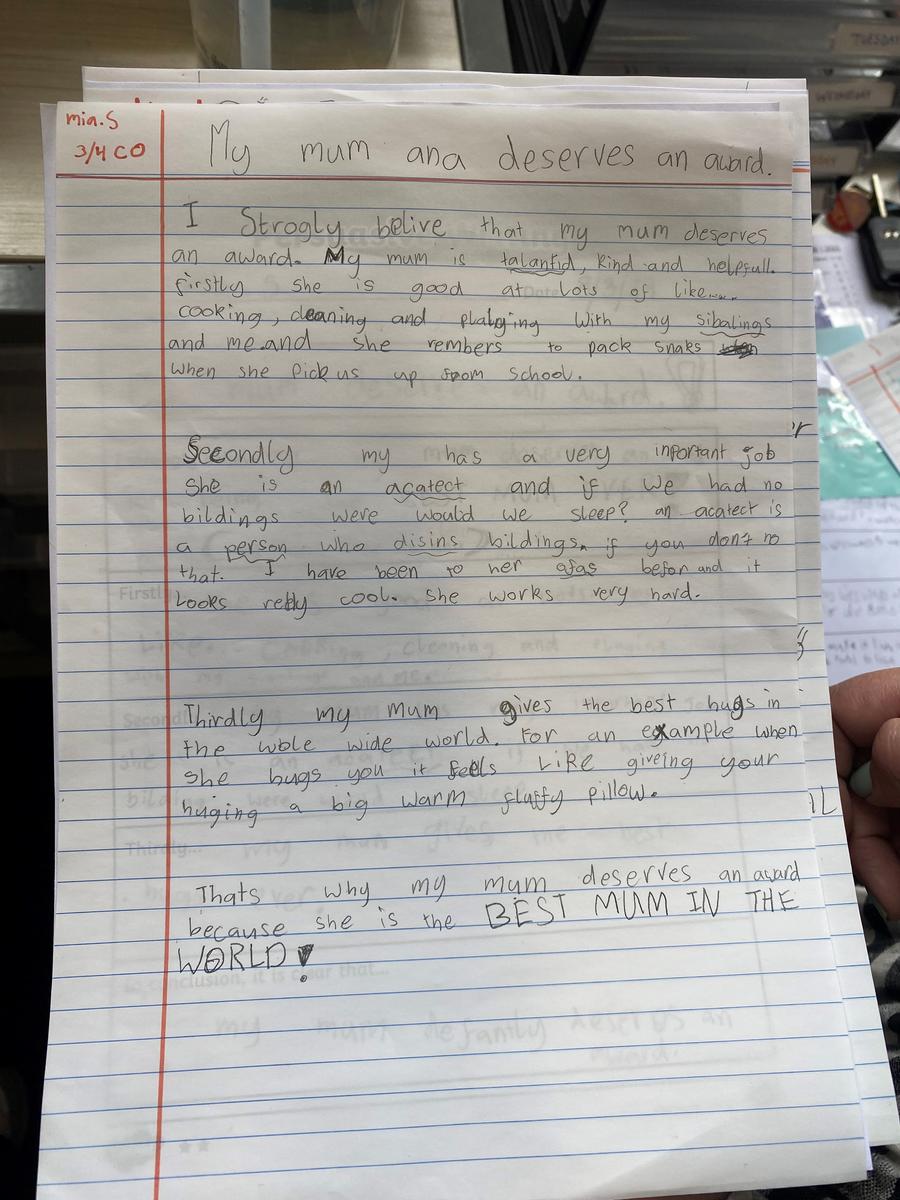 mia.S
3/4 CO
My mum ana deserves an award.
I Strogly belive that my mum deserves
an award. My mum is talantid, kind and helpfull.
firstly she is good at lots of like.....
cooking, cleaning and plabying with my sibalings
and me.and she rembers to pack snaks
when she pick us up from school.
Secondly my has a very inportant job
she is an acatect and if we had no
bildings were would we sleep? an acatect is
a person who disins bildings. if you don't no
that. I have been to her afas befor and it
Looks relly cool. she works very hard.
Thirdly my mum gives the best hugs in
the wole wide world. For an example when
she hugs you it feels Like giveing your
huging a big warm fluffy pillow.
Thats why my mum deserves an award
because she is the BEST MUM IN THE
WORLD!
TUESDAY
Firstly
Secondly
Thirdly... my mum gives the best
In conclusion, it is clear that...
my mum defantly deserves an
award.